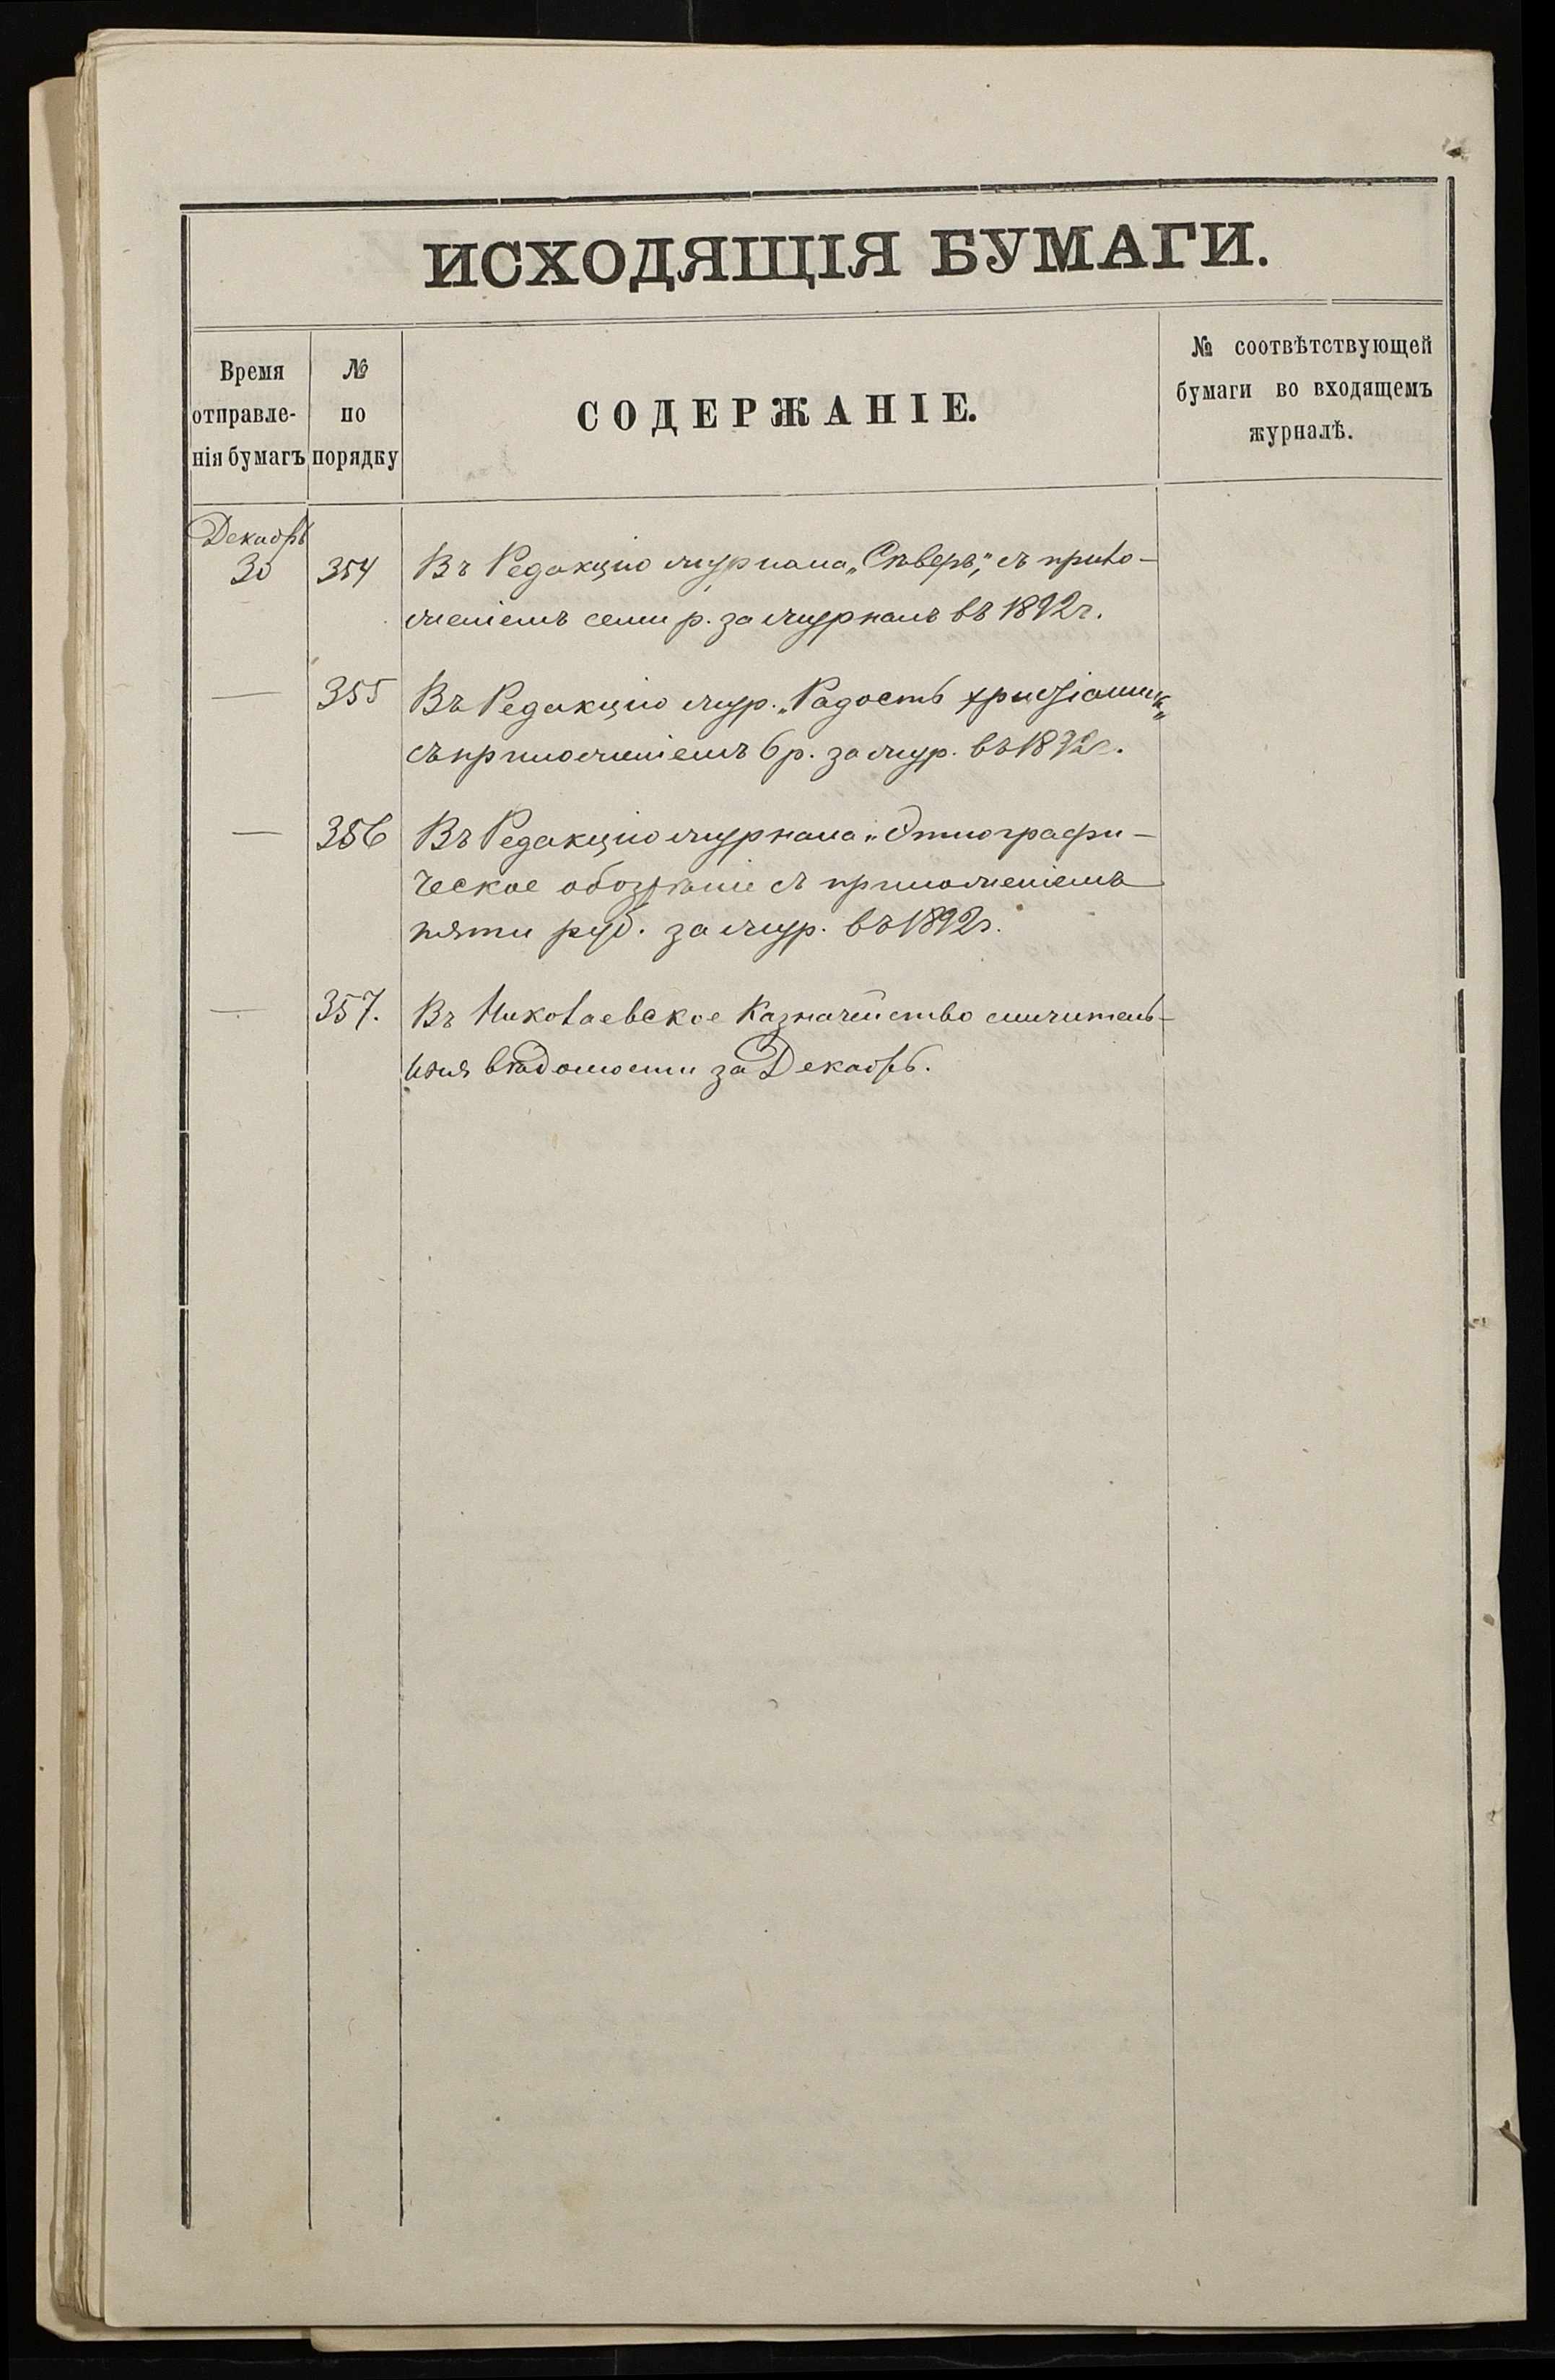 ИСХОДЯЩІЯ БУМАГИ.
Время отправле-нія бумагъ
№ по порядку
СОДЕРЖАНІЕ.
№ соотвѣтствующей бумаги во входящемъ журналѣ.
Декабрь
30 354 Въ Редакцію журнала „Сѣверъ", съ прило-
женіемъ семи р. за журналъ въ 1892 г.
— 355 Въ Редакцію жур. „Радость христіанина"
съ приложеніемъ 6 р. за жур. въ 1892 г.
— 356 Въ Редакцію журнала „Этнографи-
ческое обозрѣніе съ приложеніемъ
пяти руб. за жур. въ 1892 г.
— 357. Въ Николаевское Казначейство сличитель-
ныя вѣдомости за Декабрь.